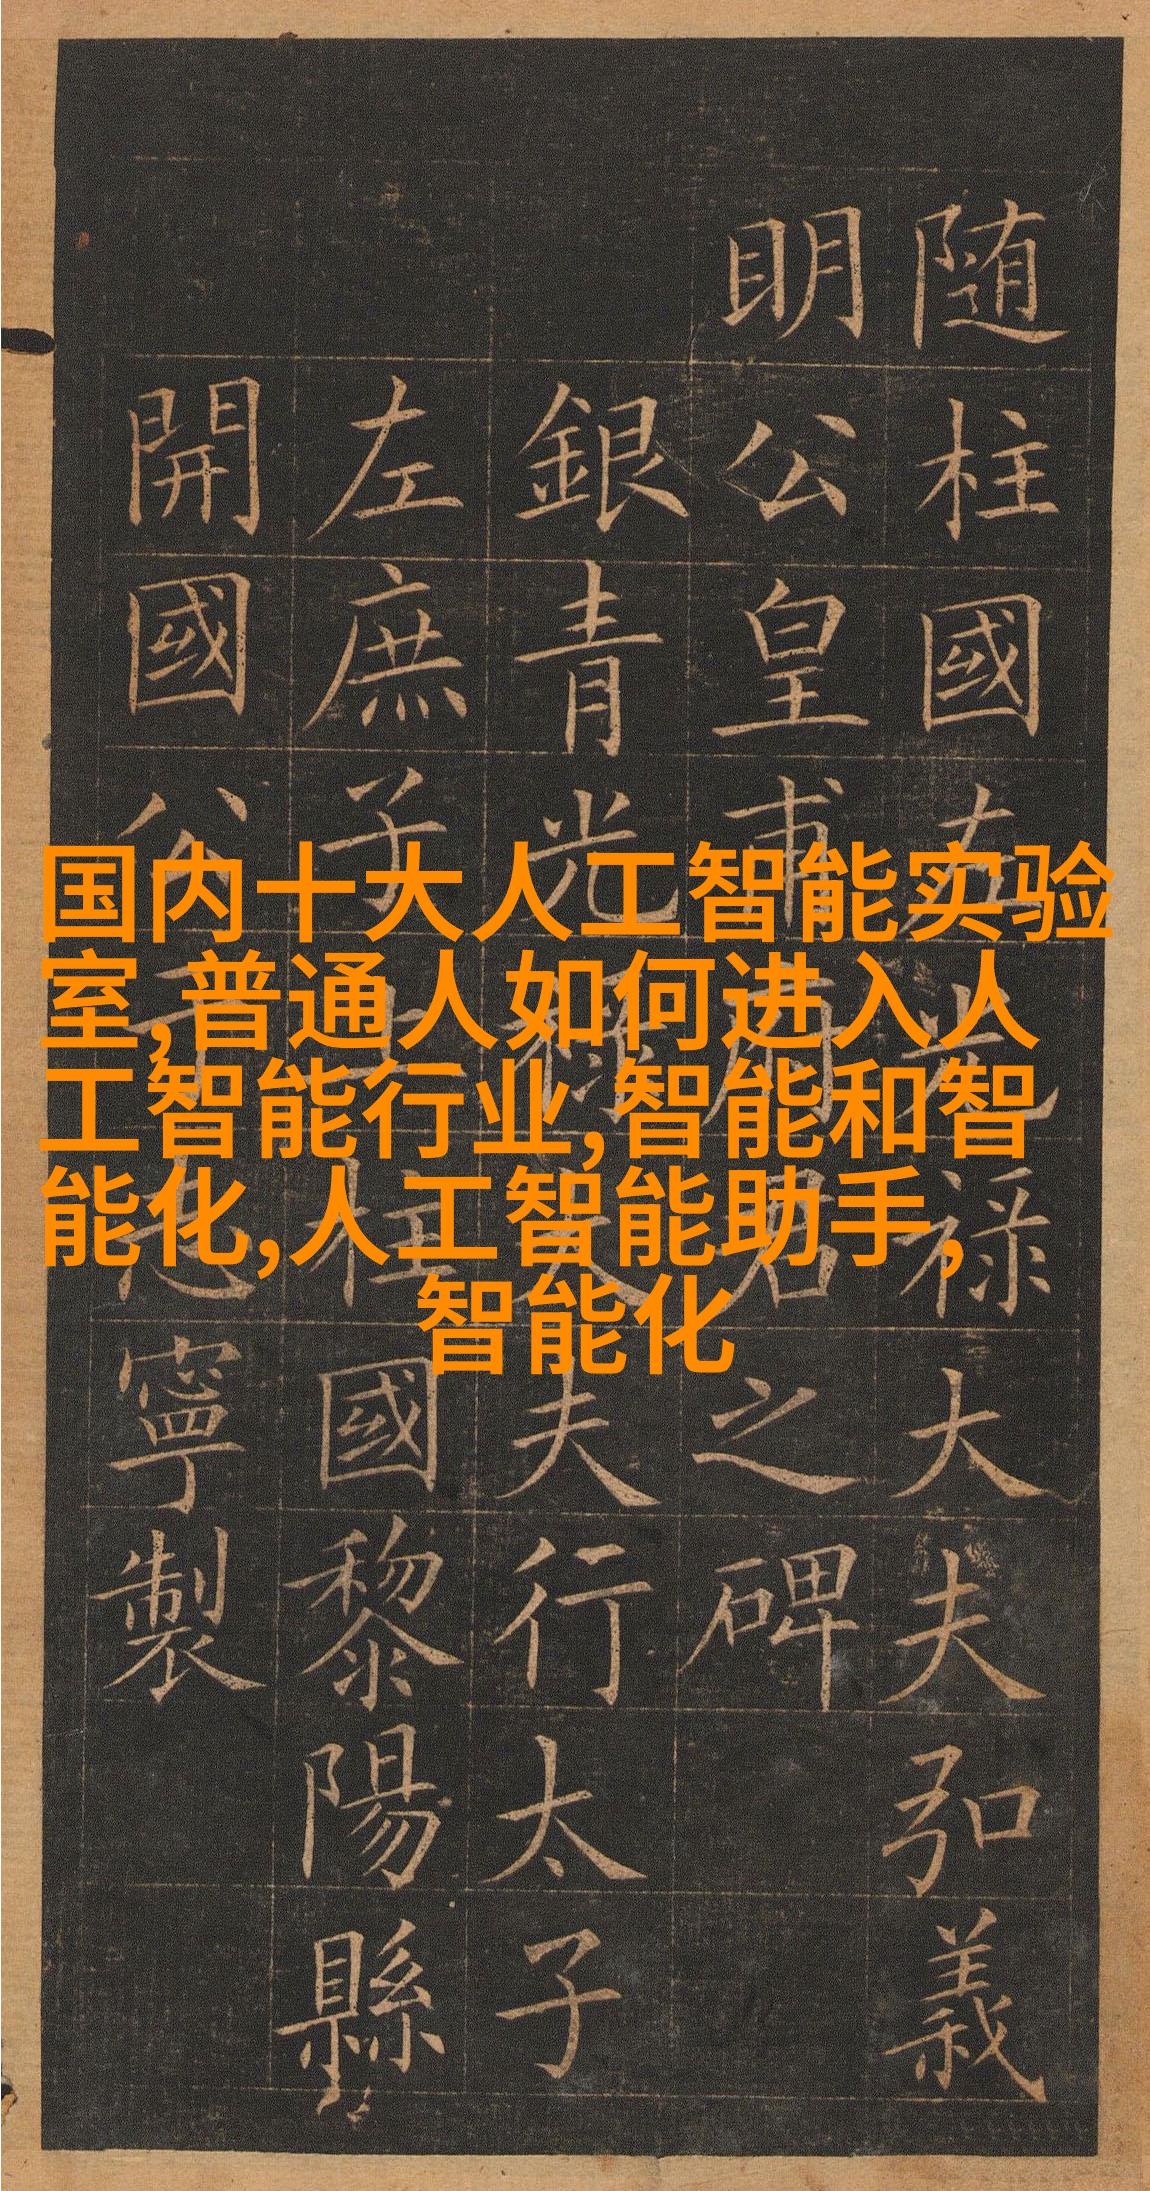 国内十大人工智能实验
室,普通人如何进入人
工智能行业,智能和智
能化,人工智能助手,
智能化
随柱國左光禄大夫弘義
明公皇甫府君之碑
銀青光禄大夫行太子
左庶子上柱國黎陽縣
開國公于志寧製